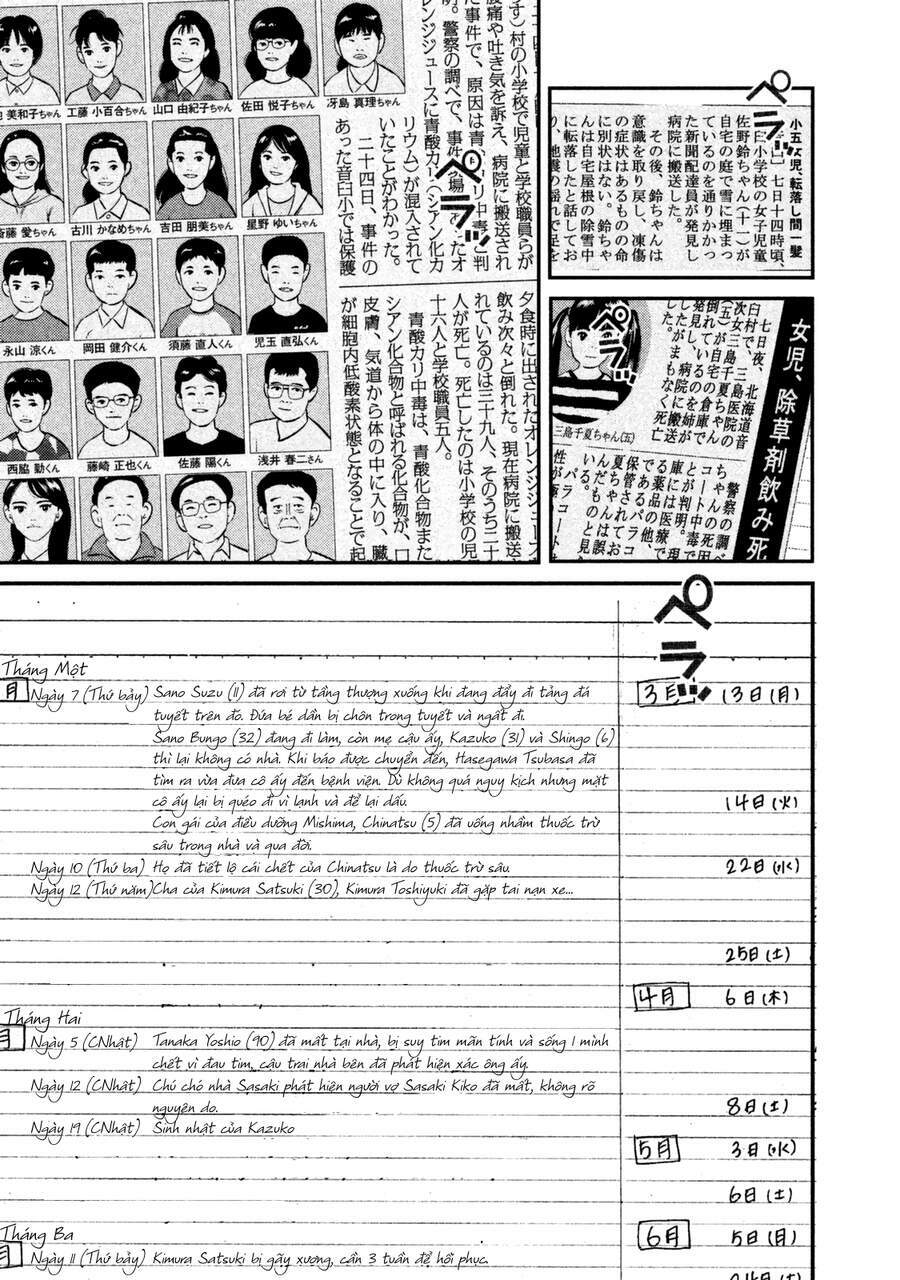 す）村の小学校で児童と学校職員らが
腹痛や吐き気を訴え、病院に搬送され
た事件で、原因は青
警察の調べで、事件
レンジジュースに青酸カリ（シアン化カ
リウム）が混入されて
いたことがわかった。
二十四日、事件の
あった音臼小では保護
美和子ちゃん
工藤 小百合ちゃん
山口 由紀子ちゃん
佐田 悦子ちゃん
冴島 真理ちゃん
斎藤 愛ちゃん
古川 かなめちゃん
吉田 朋美ちゃん
星野 ゆいちゃん
永山 涼くん
岡田 健介くん
須藤 直人くん
児玉 直弘くん
西脇 勤くん
藤崎 正也くん
佐藤 陽くん
浅井 春二さん
夕食時に出されたオレンジジュース
飲み次々と倒れた。現在病院に搬送
れているのは三十九人、そのうち二十
人が死亡。死亡したのは小学校の児
十六人と学校職員五人。
青酸カリ中毒は、青酸化合物また
シアン化合物と呼ばれる化合物が、口
皮膚、気道から体の中に入り、臓
が細胞内低酸素状態となることで起
ペラッ
小五女児、転落し間一髪
七日十四時頃、
臼小学校の女子児童
佐野鈴ちゃん（十一）が
自宅の庭で雪に埋まっ
ているのを通りかかっ
た新聞配達員が発見し
病院に搬送した。
その後、鈴ちゃんは
意識を取り戻し、凍傷
の症状はあるものの命
に別状はない。鈴ちゃ
んは自宅屋根の除雪中
に転落したと話してお
り、地震の揺れで足を
ペラッ
女児、除草剤飲み死
七日夜、北海道音
臼村で、三島医院の
次女三島千夏ちゃん
（五）が自宅の倉庫で
倒れているのを姉が
発見し、病院に搬送
したがまもなく死亡
した。
三島千夏ちゃん（五）
警察の調べ
ちゃんの死因
コート中毒で
とが判明。現
庫には医療で
る薬品の他、
であるパラコ
保管されてお
夏ちゃんは誤
んだものと見
いる。
パラコート
性が極
ペラッ
ペラッ
Tháng Một
月
Ngày 7 (Thứ bảy) Sano Suzu (11) đã rơi từ tầng thượng xuống khi đang đẩy đi tảng đá
tuyết trên đó. Đứa bé dần bị chôn trong tuyết và ngất đi.
Sano Bungo (32) đang đi làm, còn mẹ cậu ấy, Kazuko (31) và Shingo (6)
thì lại không có nhà. Khi báo được chuyển đến, Hasegawa Tsubasa đã
tìm ra vừa đưa cô ấy đến bệnh viện. Dù không quá nguy kịch nhưng mặt
cô ấy lại bị quéo đi vì lạnh và để lại dấu.
Con gái của điều dưỡng Mishima, Chinatsu (5) đã uống nhầm thuốc trừ
sâu trong nhà và qua đời.
Ngày 10 (Thứ ba) Họ đã tiết lộ cái chết của Chinatsu là do thuốc trừ sâu.
Ngày 12 (Thứ năm) Cha của Kimura Satsuki (30), Kimura Toshiyuki đã gặp tai nạn xe...
Tháng Hai
月
Ngày 5 (CNhật) Tanaka Yoshio (90) đã mất tại nhà, bị suy tim mãn tính và sống 1 mình
chết vì đau tim, cậu trai nhà bên đã phát hiện xác ông ấy.
Ngày 12 (CNhật) Chú chó nhà Sasaki phát hiện người vợ Sasaki Kiko đã mất, không rõ
nguyên do.
Ngày 19 (CNhật) Sinh nhật của Kazuko
Tháng Ba
月
Ngày 11 (Thứ bảy) Kimura Satsuki bị gãy xương, cần 3 tuần để hồi phục.
3月 13日(月)
14日(火)
22日(水)
25日(土)
4月 6日(木)
8日(土)
5月 3日(水)
6日(土)
6月 5日(月)